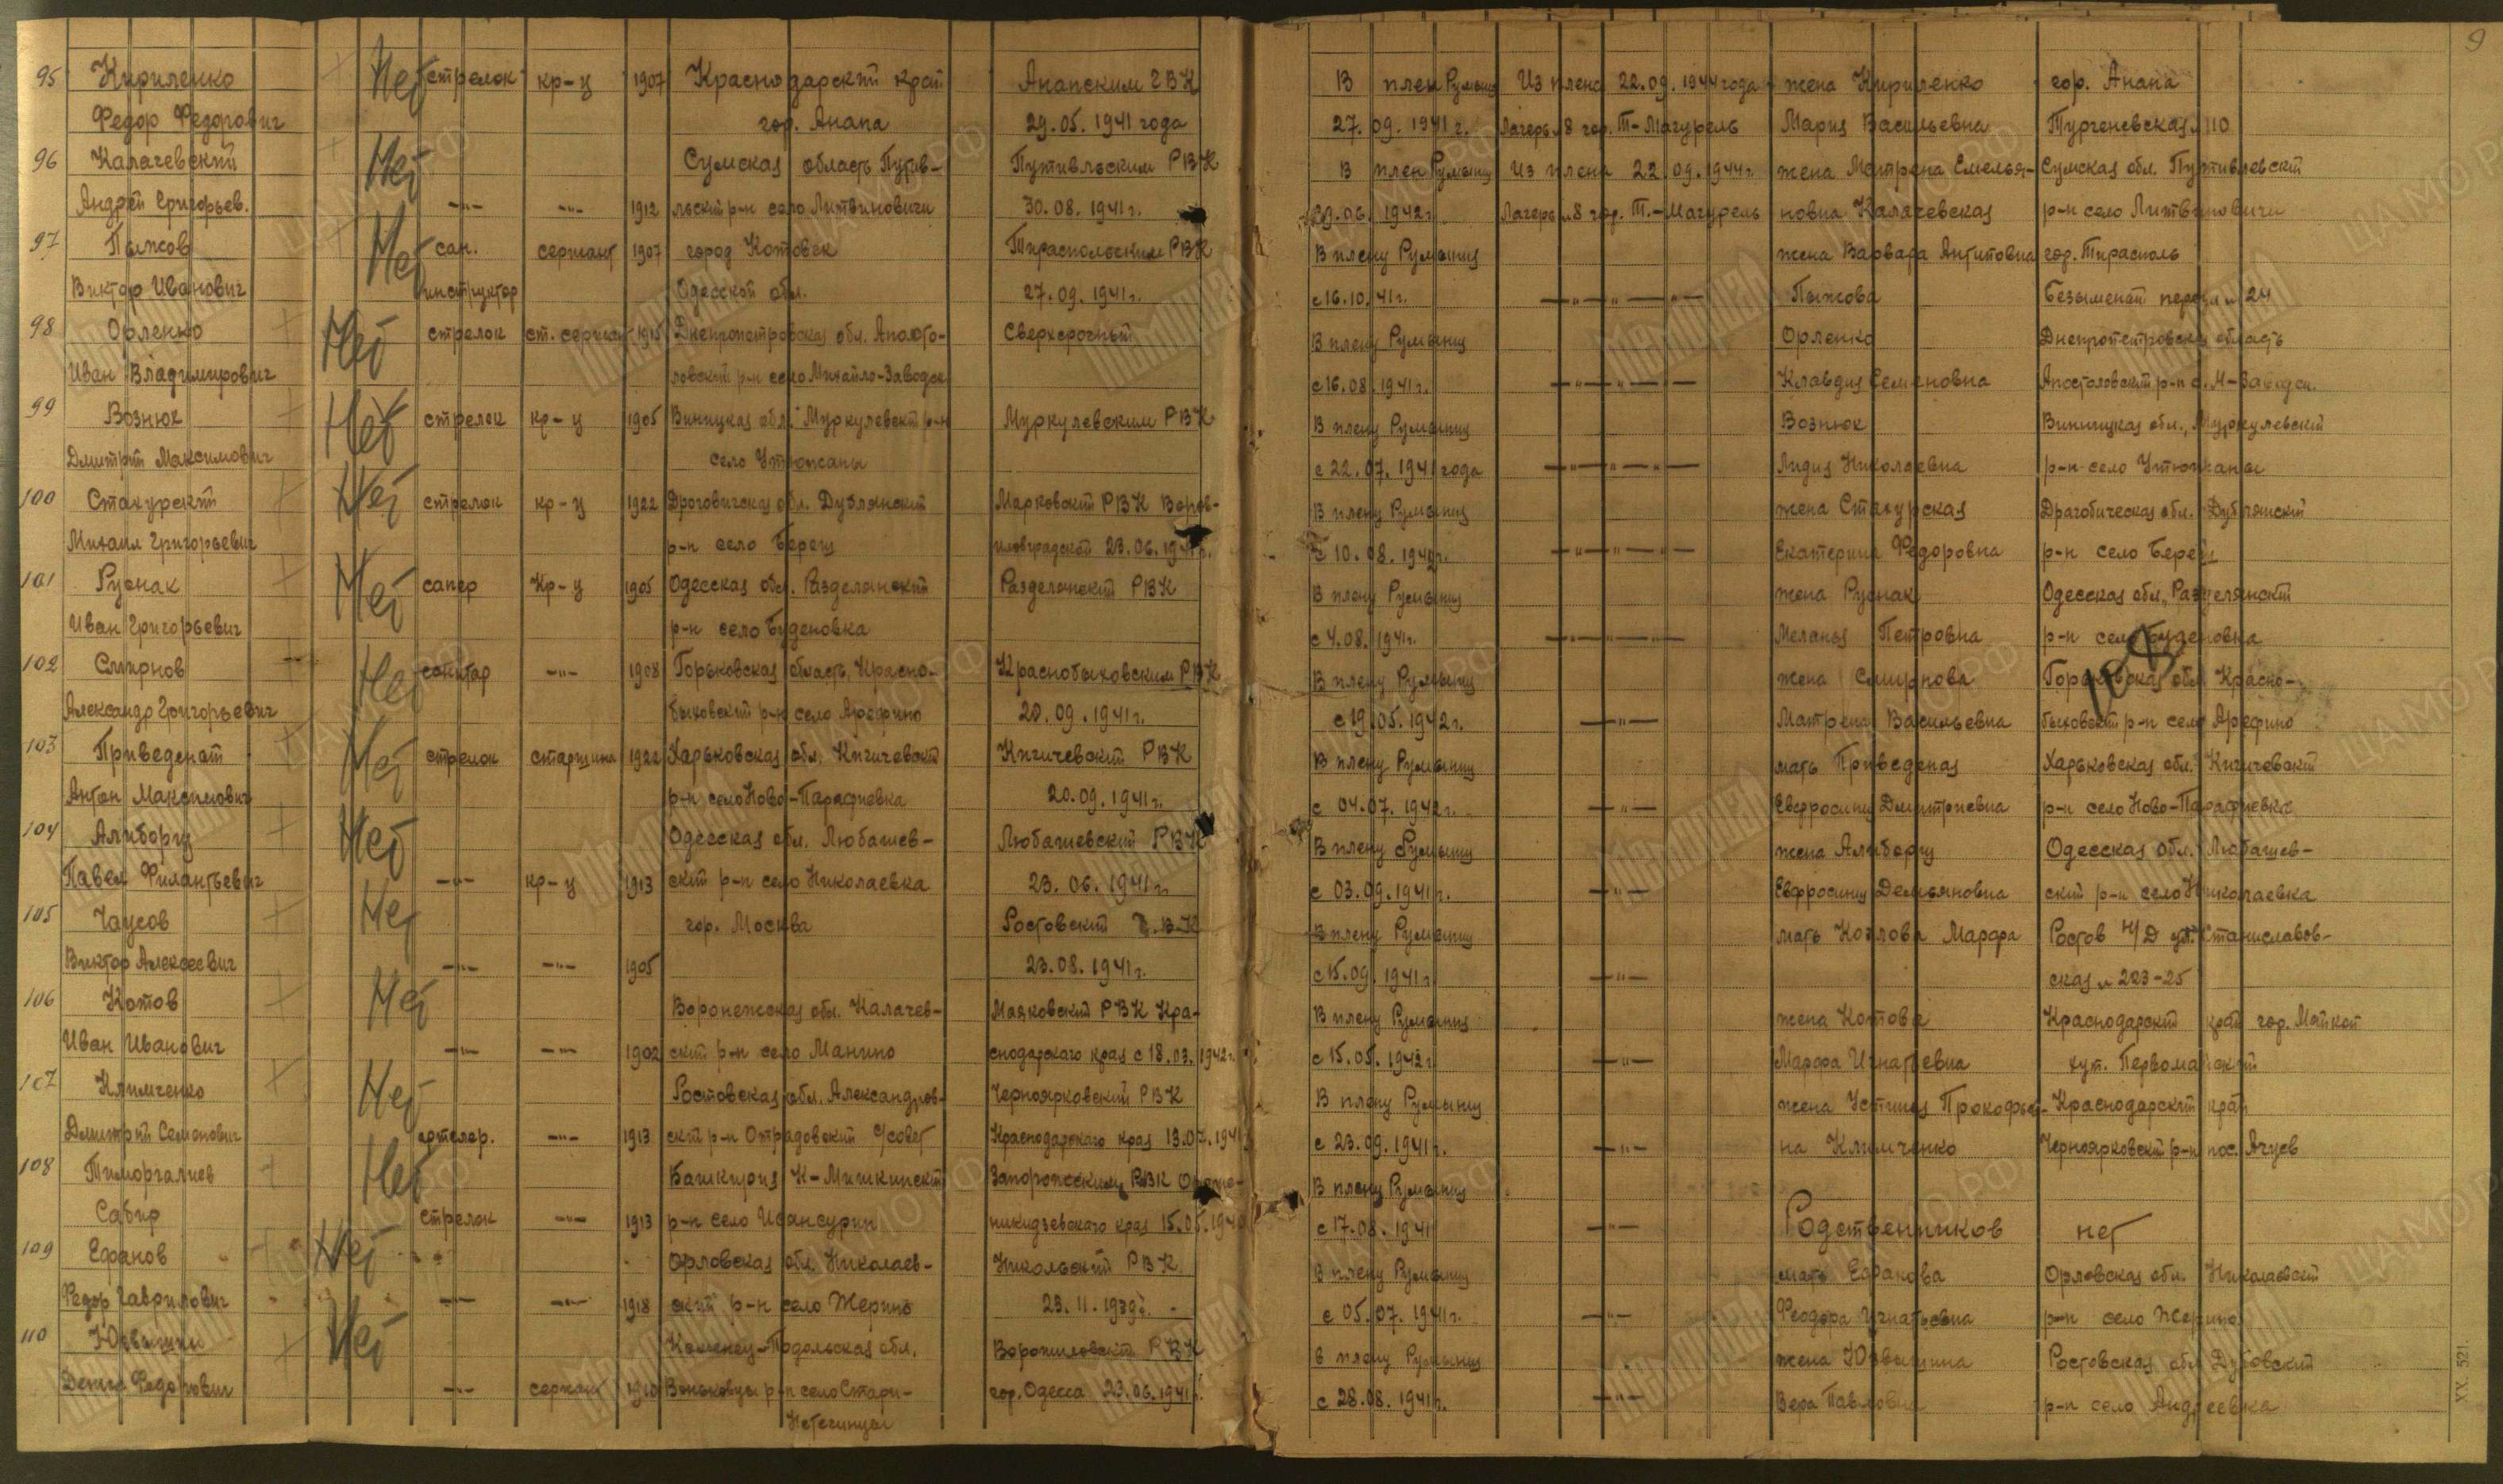 9
95 Кириленко Нет стрелок кр-ц 1907 Краснодарский край Анапским ГВК В плен Румыния Из плена 22.09.1944 года жена Кириленко гор. Анапа
Федор Федорович гор. Анапа 29.05.1941 года 27.09.1941 г. Лагерь №8 гор. Т-Магурель Мария Васильевна Тургеневская 110
96 Калачевский Нет Сумская область Путив- Путивльским РВК В плен Румыния Из плена 22.09.1944 г. жена Матрена Емелья- Сумская обл. Путивлевский
Андрей Григорьев. -"- -"- 1912 льский р-н село Литвиновичи 30.08.1941 г. 09.06.1942 г. Лагерь №8 гор. Т.-Магурель новна Калачевская р-н село Литвиновичи
97 Пыжов Нет сан. сержант 1907 город Котовск Тираспольским РВК В плену Румыния жена Варвара Антиповна гор. Тирасполь
Виктор Иванович инструктор Одесской обл. 27.09.1941 г. с 16.10.41 г. -"- Пыжова Безыменный №24
98 Орленко Нет стрелок ст. сержант 1915 Днепропетровская обл. Апосто- Сверхсрочный В плену Румыния Орленко Днепропетровская область
Иван Владимирович ловский р-н село Михайло-Заводск с 16.08.1941 г. -"- Клавдия Семеновна Апостоловский р-н с. М-Заводск.
99 Вознюк Нет стрелок кр-ц 1905 Виницкая обл. Муркулевский р-н Муркулевским РВК В плену Румыния Вознюк Виницкая обл., Муркулевский
Дмитрий Максимович село Утюжаны с 22.07.1941 года -"- Лидия Николаевна р-н село Утюжаны
100 Стакурский Нет стрелок кр-ц 1922 Дроговичская обл. Дублянский Марковский РВК Воров- В плену Румыния жена Стакурская Драгобическая обл. Дублянский
Михаил Григорьевич р-н село Берец 23.06. с 10.08. -"- Екатерина Федоровна р-н село Берец
101 Руснак Нет сапер Кр-ц 1905 Одесская обл. Разделянский Разделянский РВК В плену Румыния жена Руснак Одесская обл., Разделянский
Иван Григорьевич р-н село Буденовка с 4.08.1941 г. -"- Меланья Петровна р-н село Буденовка
102 Смирнов Нет санитар -"- 1908 Горьковская область, Красно- Краснобыховским РВК В плену Румыния жена Смирнова Горьковская обл. Красно-
Александр Григорьевич быховский р-н село Арефино 20.09.1941 г. с 19.05.1942 г. -"- Матрена Васильевна быховский р-н село Арефино
103 Приведенай Нет стрелок старшина 1922 Харьковская обл. Кигичевский Кигичевский РВК В плену Румыния мать Приведеная Харьковская обл. Кигичевский
Антон Максимович р-н село Ново-Парафиевка 20.09.1941 г. с 04.07.1942 г. -"- Евфросиния Дмитриевна р-н село Ново-Парафиевка
104 Алиборщ Нет Одесская обл. Любашев- Любашевский РВК В плену Румыния жена Алиборщ Одесская обл. Любашев-
Павел Филантьевич -"- кр-ц 1913 ский р-н село Николаевка 23.06.1941 г. с 03.09.1941 г. -"- Евфросиния Демьяновна ский р-н село Николаевка
105 Чаусов Нет гор. Москва Ростовский Г.В.К В плену Румыния мать Козлова Марфа Ростов н/Д ул. Станиславов-
Виктор Алексеевич -"- -"- 1905 23.08.1941 г. с 15.09.1941 г -"- ская № 223-25
106 Котов Нет Воронежская обл. Калачев- Маяковский РВК Кра- В плену Румыния жена Котова Краснодарский край гор. Майкоп
Иван Иванович -"- -"- 1902 ский р-н село Манино снодарского края с 18.03.1942 г. с 15.05.1942 г -"- Марфа Игнатьевна хут. Первомайский
107 Климченко Нет Ростовская обл. Александров- Черноярковский РВК В плену Румыния жена Устиния Прокофьев- Краснодарский край
Дмитрий Семенович артилер. -"- 1913 ский р-н Отрадовский с/совет Краснодарского края 13.07.1941 с 23.09.1941 г. -"- на Климченко Черноярковский р-н пос. Ачуев
108 Тиморгалиев Нет Башкирия К-Мишкинский Запорожским РВК Орджо- В плену Румыния
Сабир стрелок -"- 1913 р-н село никидзевского края 15.05.194 с 17.08.1941 -"- Родственников нет
109 Ефанов Нет Орловская обл. Николаев- Никольский РВК В плену Румыния мать Ефанова Орловская обл. Николаевский
Федор Гаврилович -"- -"- 1918 ский р-н село Жерино 23.11.1939 г. с 05.07.1941 г. -"- Феодора Игнатьевна р-н село Жерино
110 Нет Каменец-Подольская обл. Ворошиловский РВК в плену Румыния жена Ростовская обл Дубовский
Денис Федорович -"- сержант 1910 Воньковцы р-н село Стари- гор. Одесса 23.06.1941 г. с 28.08.1941 г. -"- Вера Павловна р-н село Андреевка
Нетечинцы
XX. 521.